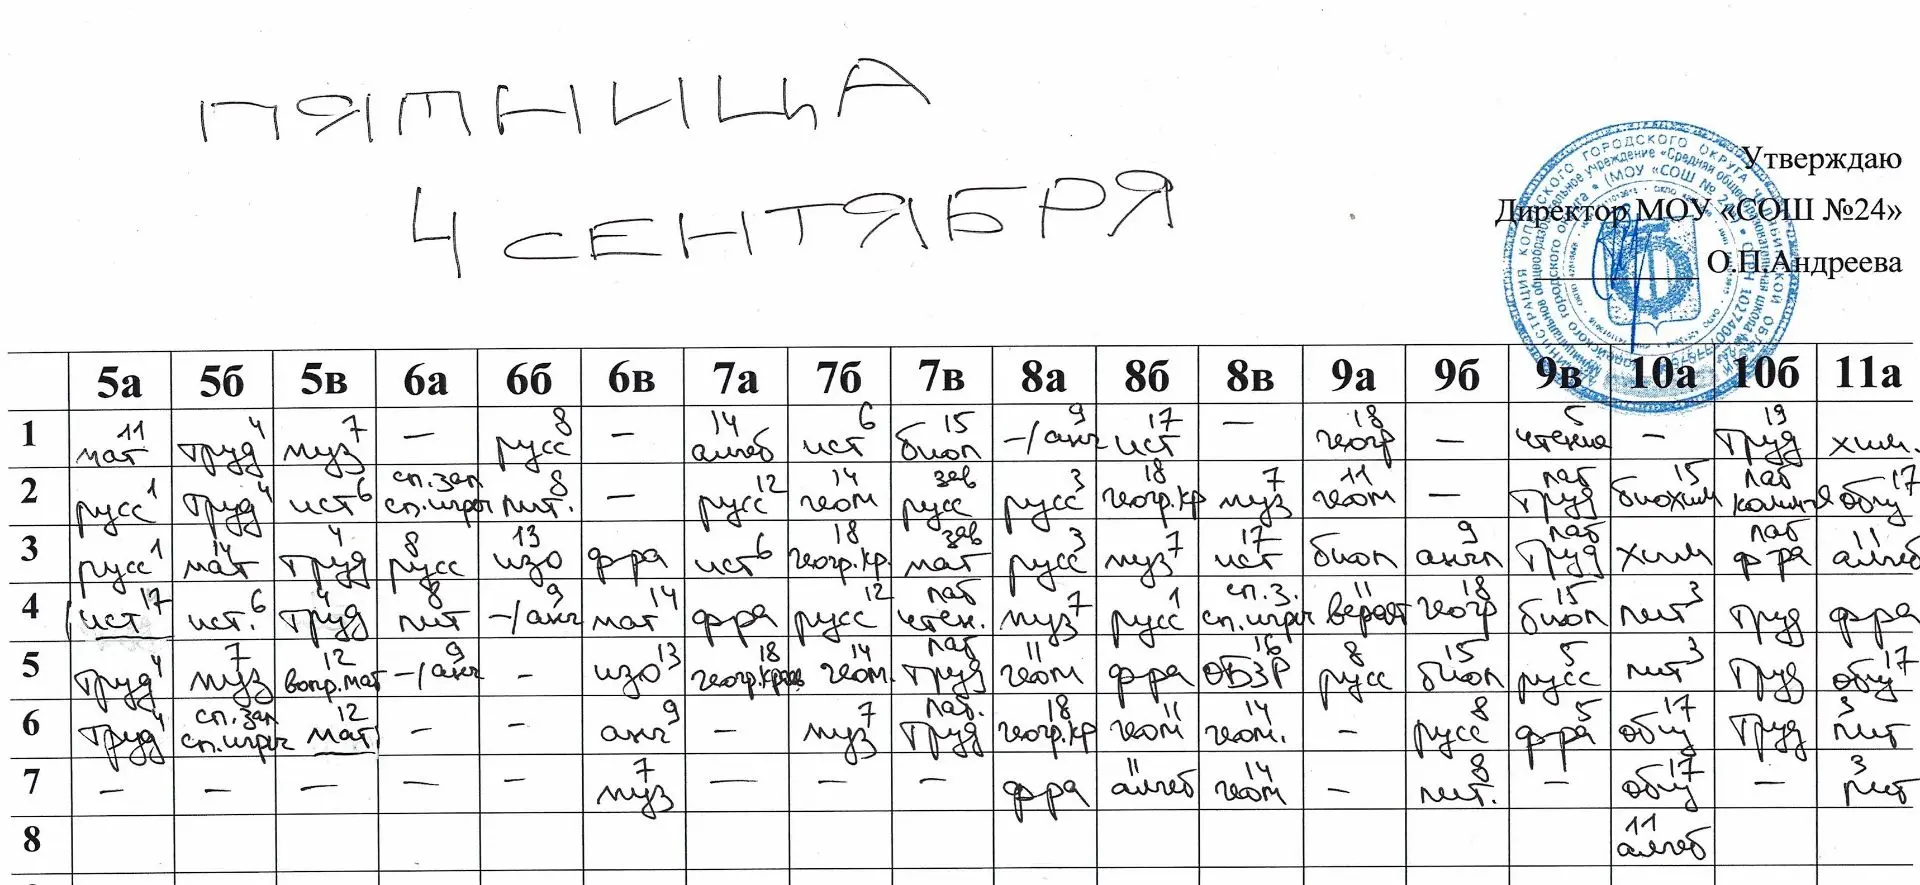 ПЯТНИЦА
4 СЕНТЯБРЯ
Утверждаю
Директор МОУ «СОШ №24»
О.П.Андреева
5а 5б 5в 6а 6б 6в 7а 7б 7в 8а 8б 8в 9а 9б 9в 10а 10б 11а
1 мат 11 труд 4 муз 7 – русс 8 – алгеб 14 ист 6 биол 15 –/англ 9 ист 17 – геогр 18 – чтение 5 – труд 19 хим.
2 русс 1 труд 4 ист 6 сп.зал сп.игры лит. 8 – русс 12 геом 14 русс зав русс 3 геогр.кр 18 муз 7 геом 11 – труд лаб биохим 15 лаб общ 17
3 русс 1 мат 14 труд 4 русс 8 изо 13 ф-ра ист 6 геогр.кр. 18 мат зав русс 3 муз 7 ист 17 биол англ 9 труд лаб хим ф-ра лаб алгеб 11
4 ист 17 ист. 6 труд 4 лит 8 –/англ 9 мат 14 ф-ра русс 12 чтен. лаб муз 7 русс 1 сп.з. сп.игры вероят 11 геогр 18 биол 15 лит 3 труд ф-ра
5 труд 4 муз 7 вопр.мат 12 –/англ 9 – изо 13 геогр.края 18 геом. 14 труд лаб геом 11 ф-ра ОБЗР 16 русс 8 биол 15 русс 5 лит 3 труд общ 17
6 труд 4 сп.зал сп.игры мат 12 – – англ 9 – муз 7 труд лаб. геогр.кр 18 геом 11 геом. 14 – русс 8 ф-ра 5 общ 17 труд лит 3
7 – – – – – муз 7 – – – ф-ра алгеб 11 геом 14 – лит. 8 – общ 17 – лит 3
8 алгеб 11